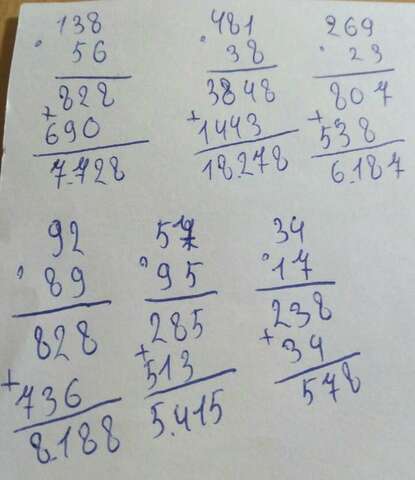 138
· 56
828
+ 690
7.728
481
· 38
3848
+ 1443
18.278
269
· 23
807
+ 538
6.187
92
· 89
828
+ 736
8.188
57
· 95
285
+ 513
5.415
34
· 17
238
+ 34
578